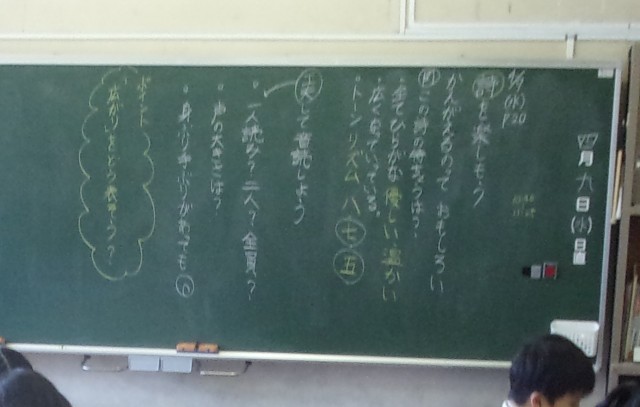 四月九日(水)日直
4/9(水) P20
詩を楽しもう
かんがえるのって おもしろい
四 この詩の特ちょうは?
・全てひらがな 優しい、温かい
・広く見ていっている。
・トーン リズム 八 七 五
工夫して音読しよう
・一人読み?二人?全員?
・声の大きさは?
・身ぶり手ぶりがあっても
ポイント
広がりをどう表そう?